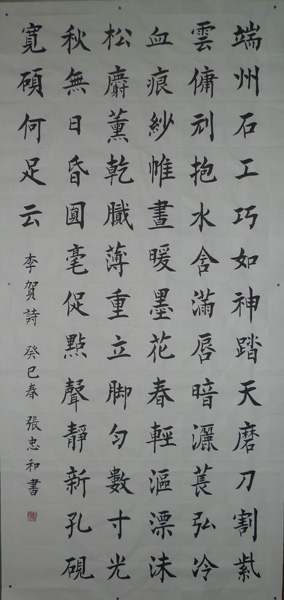 端州石工巧如神踏天磨刀割紫
雲傭刓抱水含滿唇暗灑萇弘冷
血痕紗帷晝暖墨花春輕漚漂沫
松麝薰乾膩薄重立脚勻數寸光
秋無日昏圓毫促點聲靜新孔硯
寬碩何足云
李賀詩 癸巳春 張忠和書